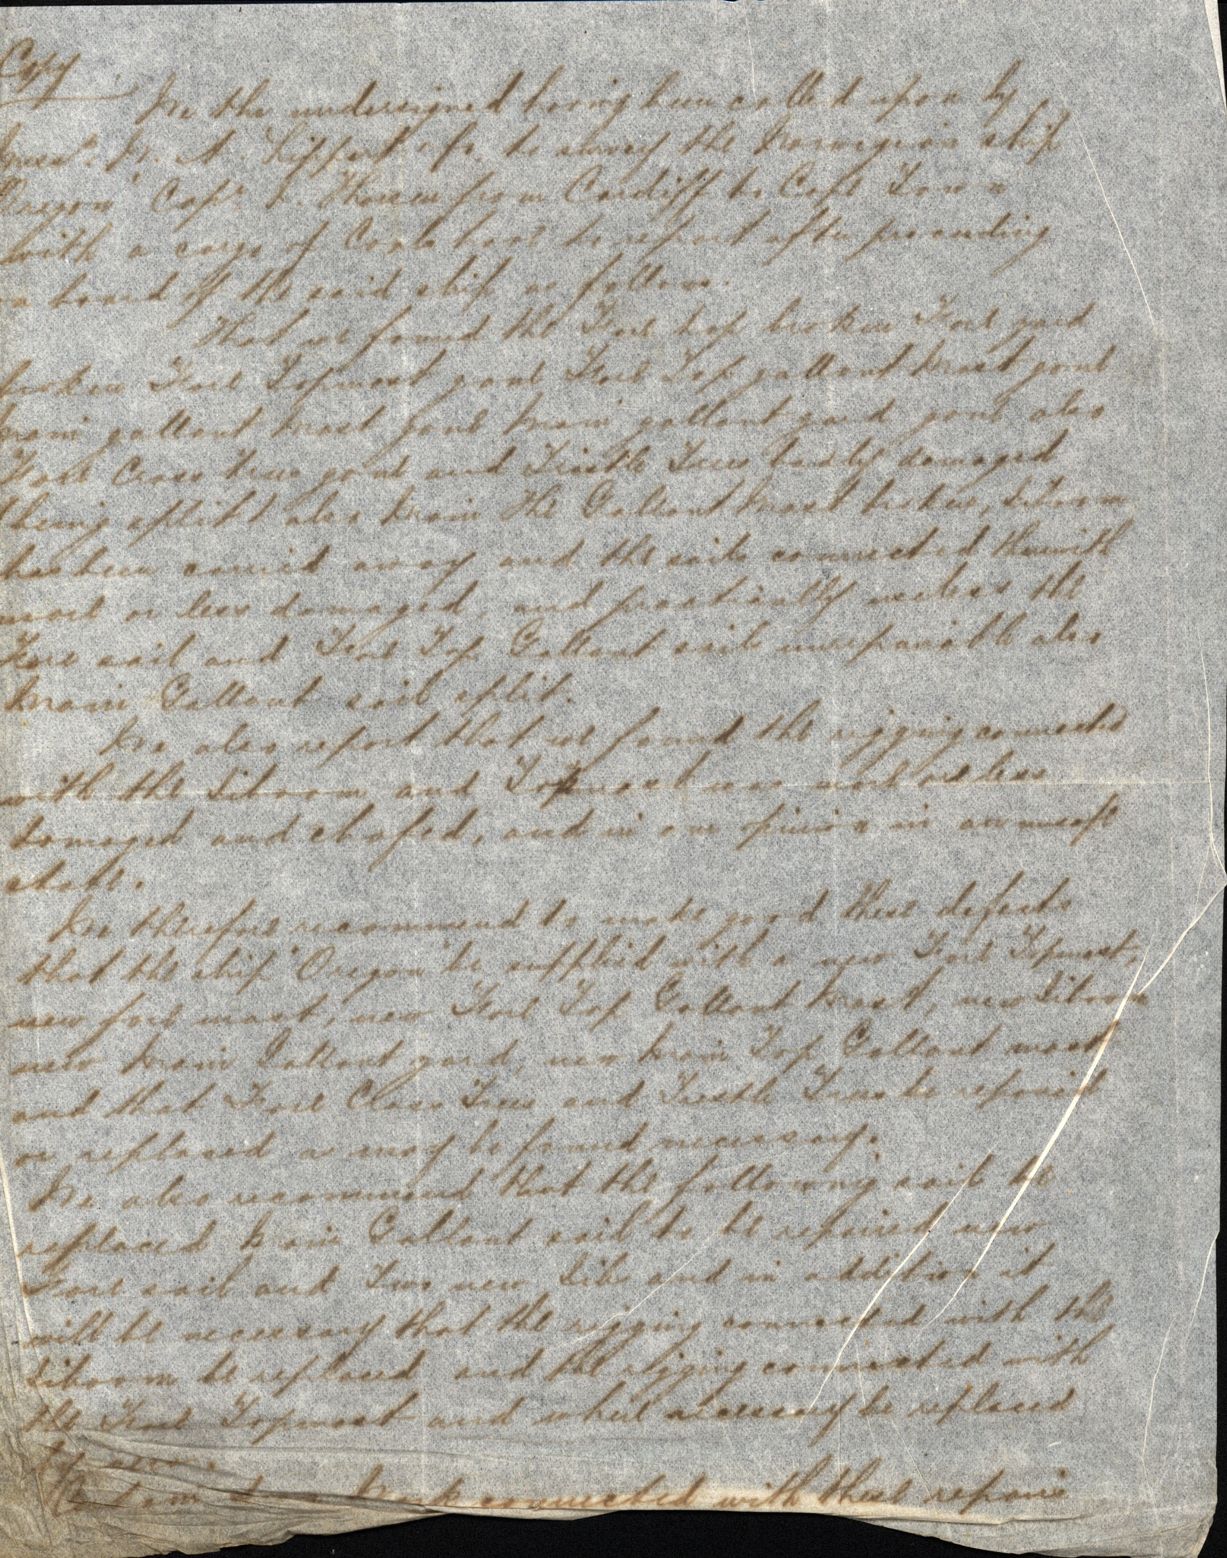 Copy
We the undersigned having been called upon by
Messrs. W. A. Lippert & Co. to survey the Norwegian ship
Oregon Capt. Thorsen from Cardiff to Cape Town
with a cargo of Coals beg to report after proceeding
on board of the said ship as follows.
That we found the Fore top broken Fore yard
broken Fore Topmast gone Fore Top gallant Mast gone
Main gallant Mast gone Main gallant yard gone also
Fore Cross Trees gone and Trestle Trees badly damaged
(being split) also Main the Gallant Mast broken, Jiboom
has been carried away and the sails connected therewith
more or less damaged, and practically useless the
Fore sail and Fore Top Gallant sails unrepairable also
Main Gallant sail split.
We also report that we found the rigging connected
with the Jiboom and Topmast was more or less
damaged and chafed, and in our opinion in an unsafe
state.
We therefore recommend to make good these defects
that the ship "Oregon" be supplied with a new Fore Topmast,
new fore mast, new Fore Top Gallant Mast, new Jiboom
new Main Gallant yard, new Main Top Gallant mast
and that Fore Cross Trees and Trestle Trees be repaired
or replaced as may be found necessary.
We also recommend that the following sails be
replaced Main Gallant sail to be repaired new
Fore sail and Two new Jibs and in addition it
will be necessary that the rigging connected with the
Jiboom be replaced and the rigging connected with
the Fore Topmast and where necessary be replaced
connected with these repairs